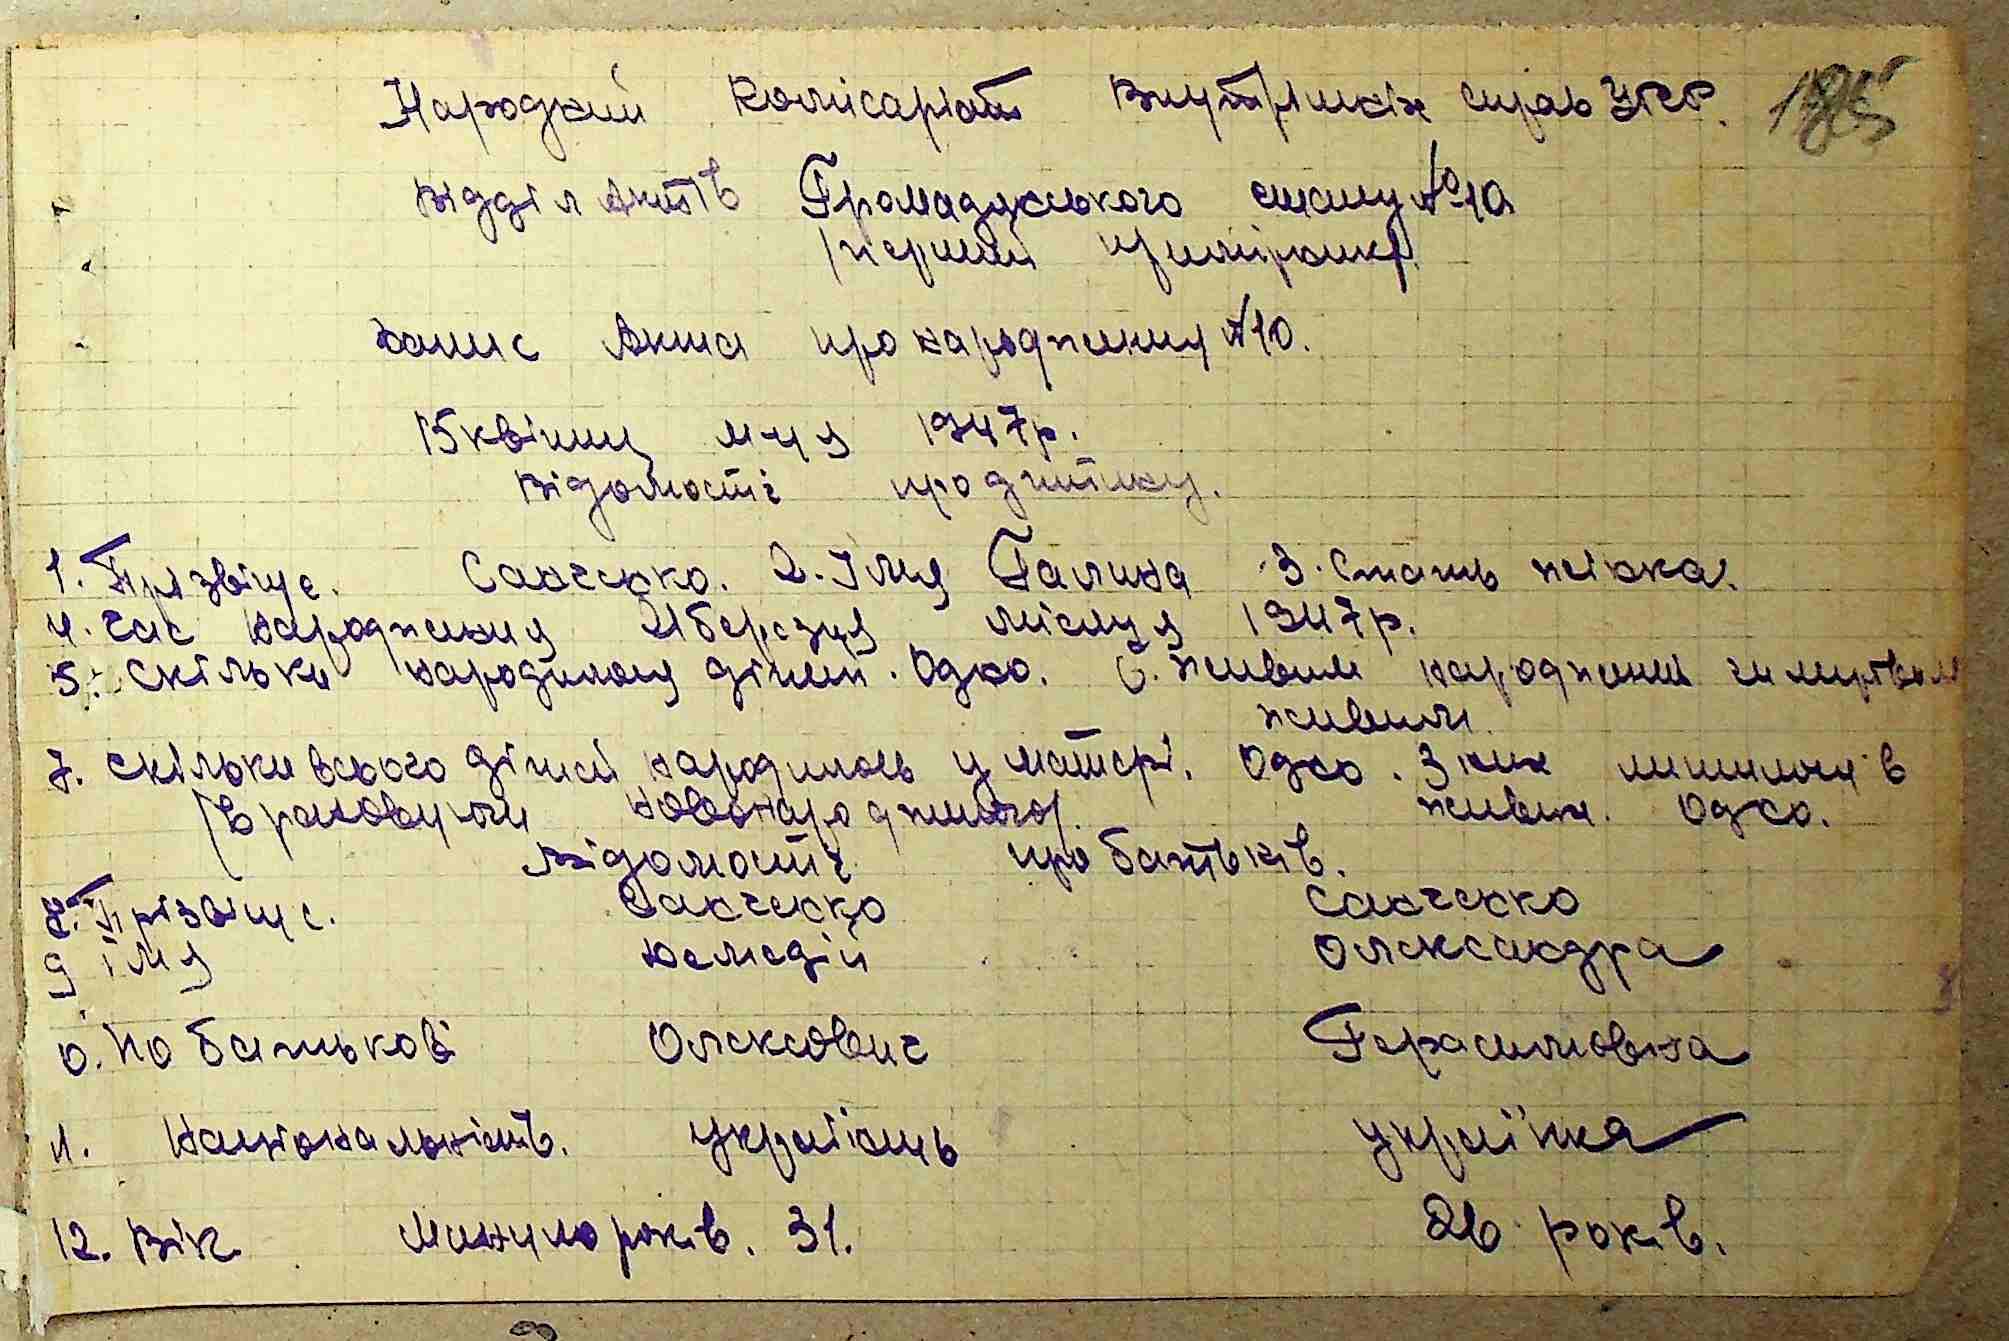 Народний Комісаріат Внутрішніх справ УРСР. 185
Відділ Актів Громадського стану №10
/перший примірник/
Запис Акта про народження №10.
15 квітня м-ця 1947р.
Відомості про дитину.
1. Прізвіще. Савченко. 2. Імя Галина 3. Стать жінка.
4. Час народження 21 березня місяця 1947р.
5. Скільки народилося дітей. Одно. 6. Живим народжений чи мертвим
живим.
7. Скільки всього дітей народилось у матері. Одно. З них лишилося в
/враховуючи новонародженого/. живих. Одно.
Відомості про батьків.
8. Прізвіще. Савченко Савченко
9 імя Олександра
10. По батькові Олексович Герасимовна
11. Національність. українць українка
12. Вік Минуло років. 31. 26 років.